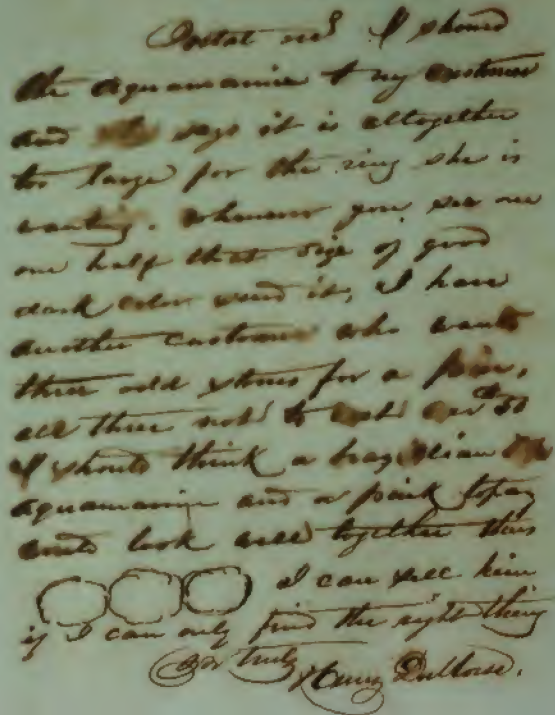 Postal recd I showed
the aquamarine to my customer
and she says it is altogether
too large for the ring she is
wanting. Whenever you see one
one half that size of good
dark color send it, I have
another customer who wants
three odd stones for a pin,
all three not to cost over $50
I should think a brazilian
aquamarine and a pink topaz
would look well together thus
I can sell him
if I can only find the right thing
Yrs truly